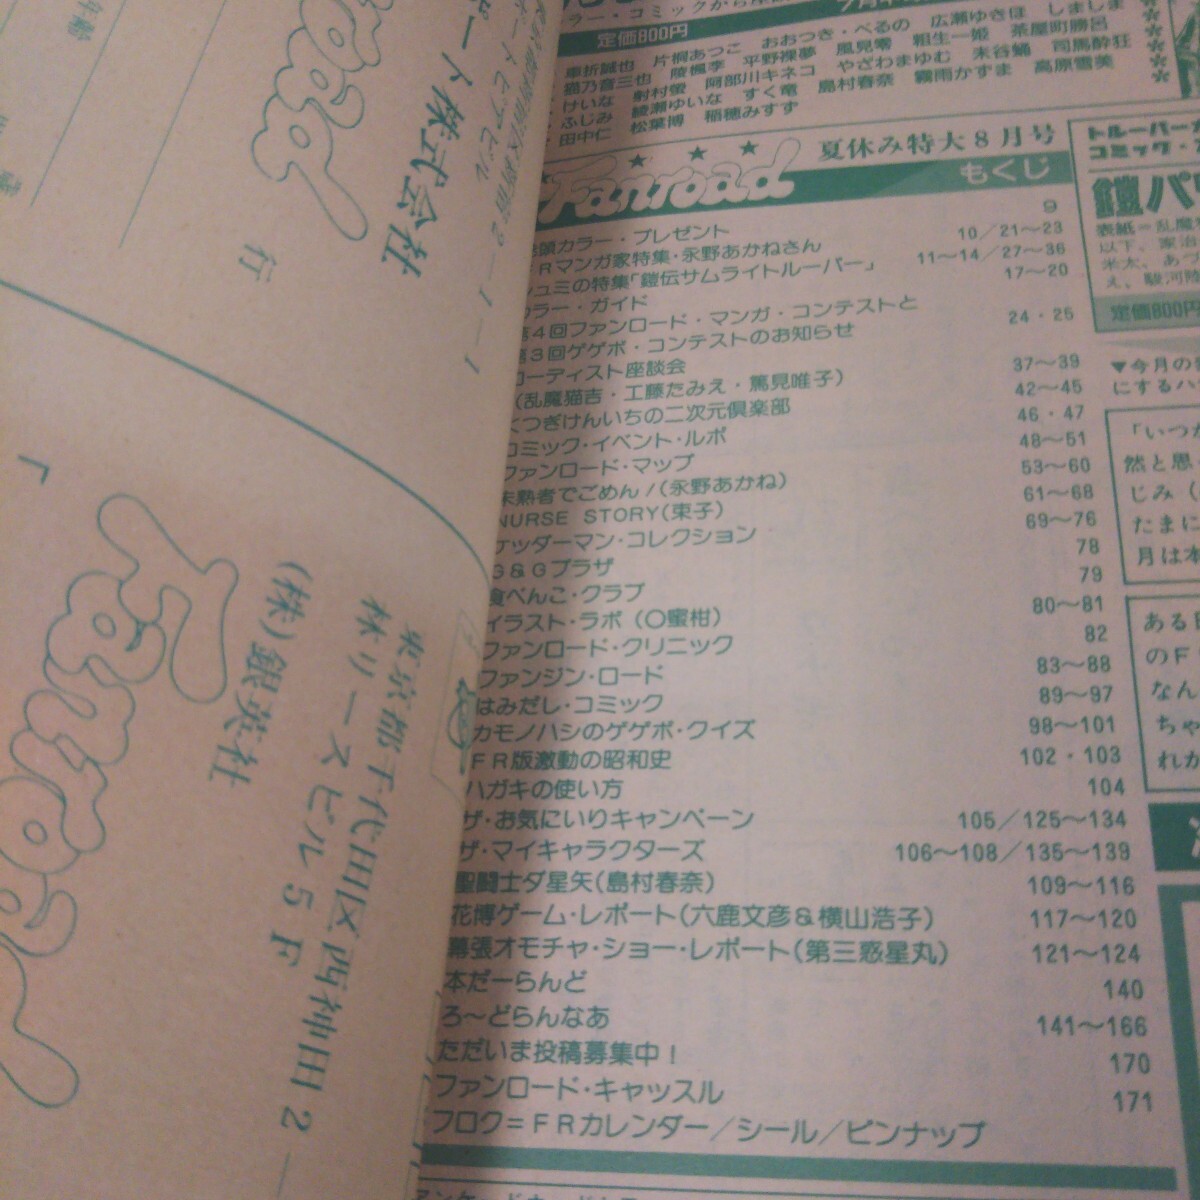 定価800円
車折誠也 片桐あつこ おおつき・べるの 広瀬ゆきほ しましま
猫乃音三也 陵楓李 平野裸夢 風見零 粗生一姫 茶屋町勝呂
けいな 射村螢 阿部川キネコ やざわまゆむ 末谷蛹 司馬酔狂
ふじみ 綾瀬ゆいな すく竜 島村春奈 霧雨かずま 高原雪美
田中仁 松葉博 稲穂みすず
Fanroad
夏休み特大8月号
もくじ
巻頭カラー・プレゼント 9
FRマンガ家特集・永野あかねさん 10/21〜23
シュミの特集「鎧伝サムライトルーパー」 11〜14/27〜36
カラー・ガイド 17〜20
第4回ファンロード・マンガ・コンテストと
第3回ゲゲボ・コンテストのお知らせ 24・25
ローディスト座談会
(乱魔猫吉・工藤たみえ・篤見唯子) 37〜39
くつぎけんいちの二次元倶楽部 42〜45
コミック・イベント・ルポ 46・47
ファンロード・マップ 48〜51
未熟者でごめん!(永野あかね) 53〜60
NURSE STORY(束子) 61〜68
ケッダーマン・コレクション 69〜76
G&Gプラザ 78
食べんこ・クラブ 79
イラスト・ラボ(〇蜜柑) 80〜81
ファンロード・クリニック 82
ファンジン・ロード 83〜88
はみだし・コミック 89〜97
カモノハシのゲゲボ・クイズ 98〜101
FR版激動の昭和史 102・103
ハガキの使い方 104
ザ・お気にいりキャンペーン 105/125〜134
ザ・マイキャラクターズ 106〜108/135〜139
聖闘士ダ星矢(島村春奈) 109〜116
花博ゲーム・レポート(六鹿文彦&横山浩子) 117〜120
幕張オモチャ・ショー・レポート(第三惑星丸) 121〜124
本だーらんど 140
ろ〜どらんなあ 141〜166
ただいま投稿募集中! 170
ファンロード・キャッスル 171
フロク=FRカレンダー/シール/ピンナップ
トルーパー
コミック・
鎧パ
表紙=乱魔
以下、家治
米太、あづ
え、駿河
定価800円
▼今月の
にするハ
「いつか
然と思
じみ(
たまに
月は本
ある日
のF
なん
ちゃ
れか
ポート株式会社
行
Fanroad
東京都千代田区西神田2
林リースビル5F
(株)銀英社
「
Fanroad